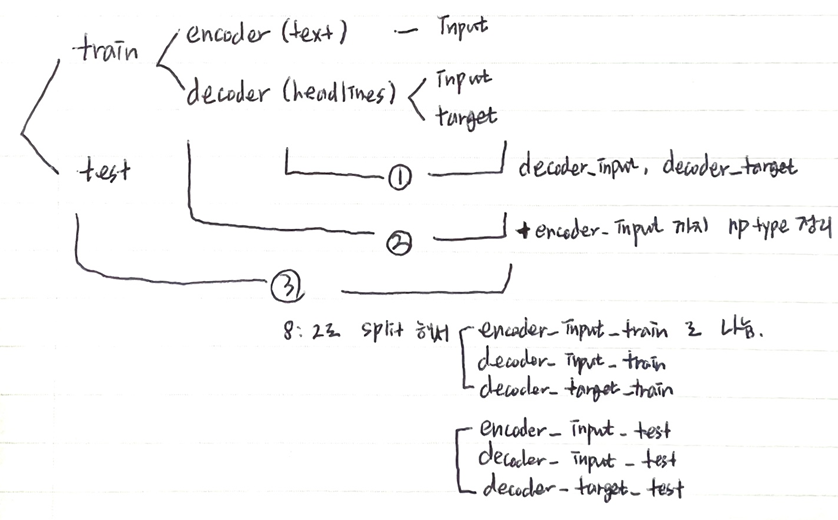 train
encoder (text) — Input
decoder (headlines)
Input
target
test
① decoder_input, decoder_target
② + encoder_Input 까지 np type 정리
③
8:2로 split 해서 encoder_input_train 로 나눔.
decoder_input_train
decoder_target_train
encoder_input_test
decoder_input_test
decoder_target_test